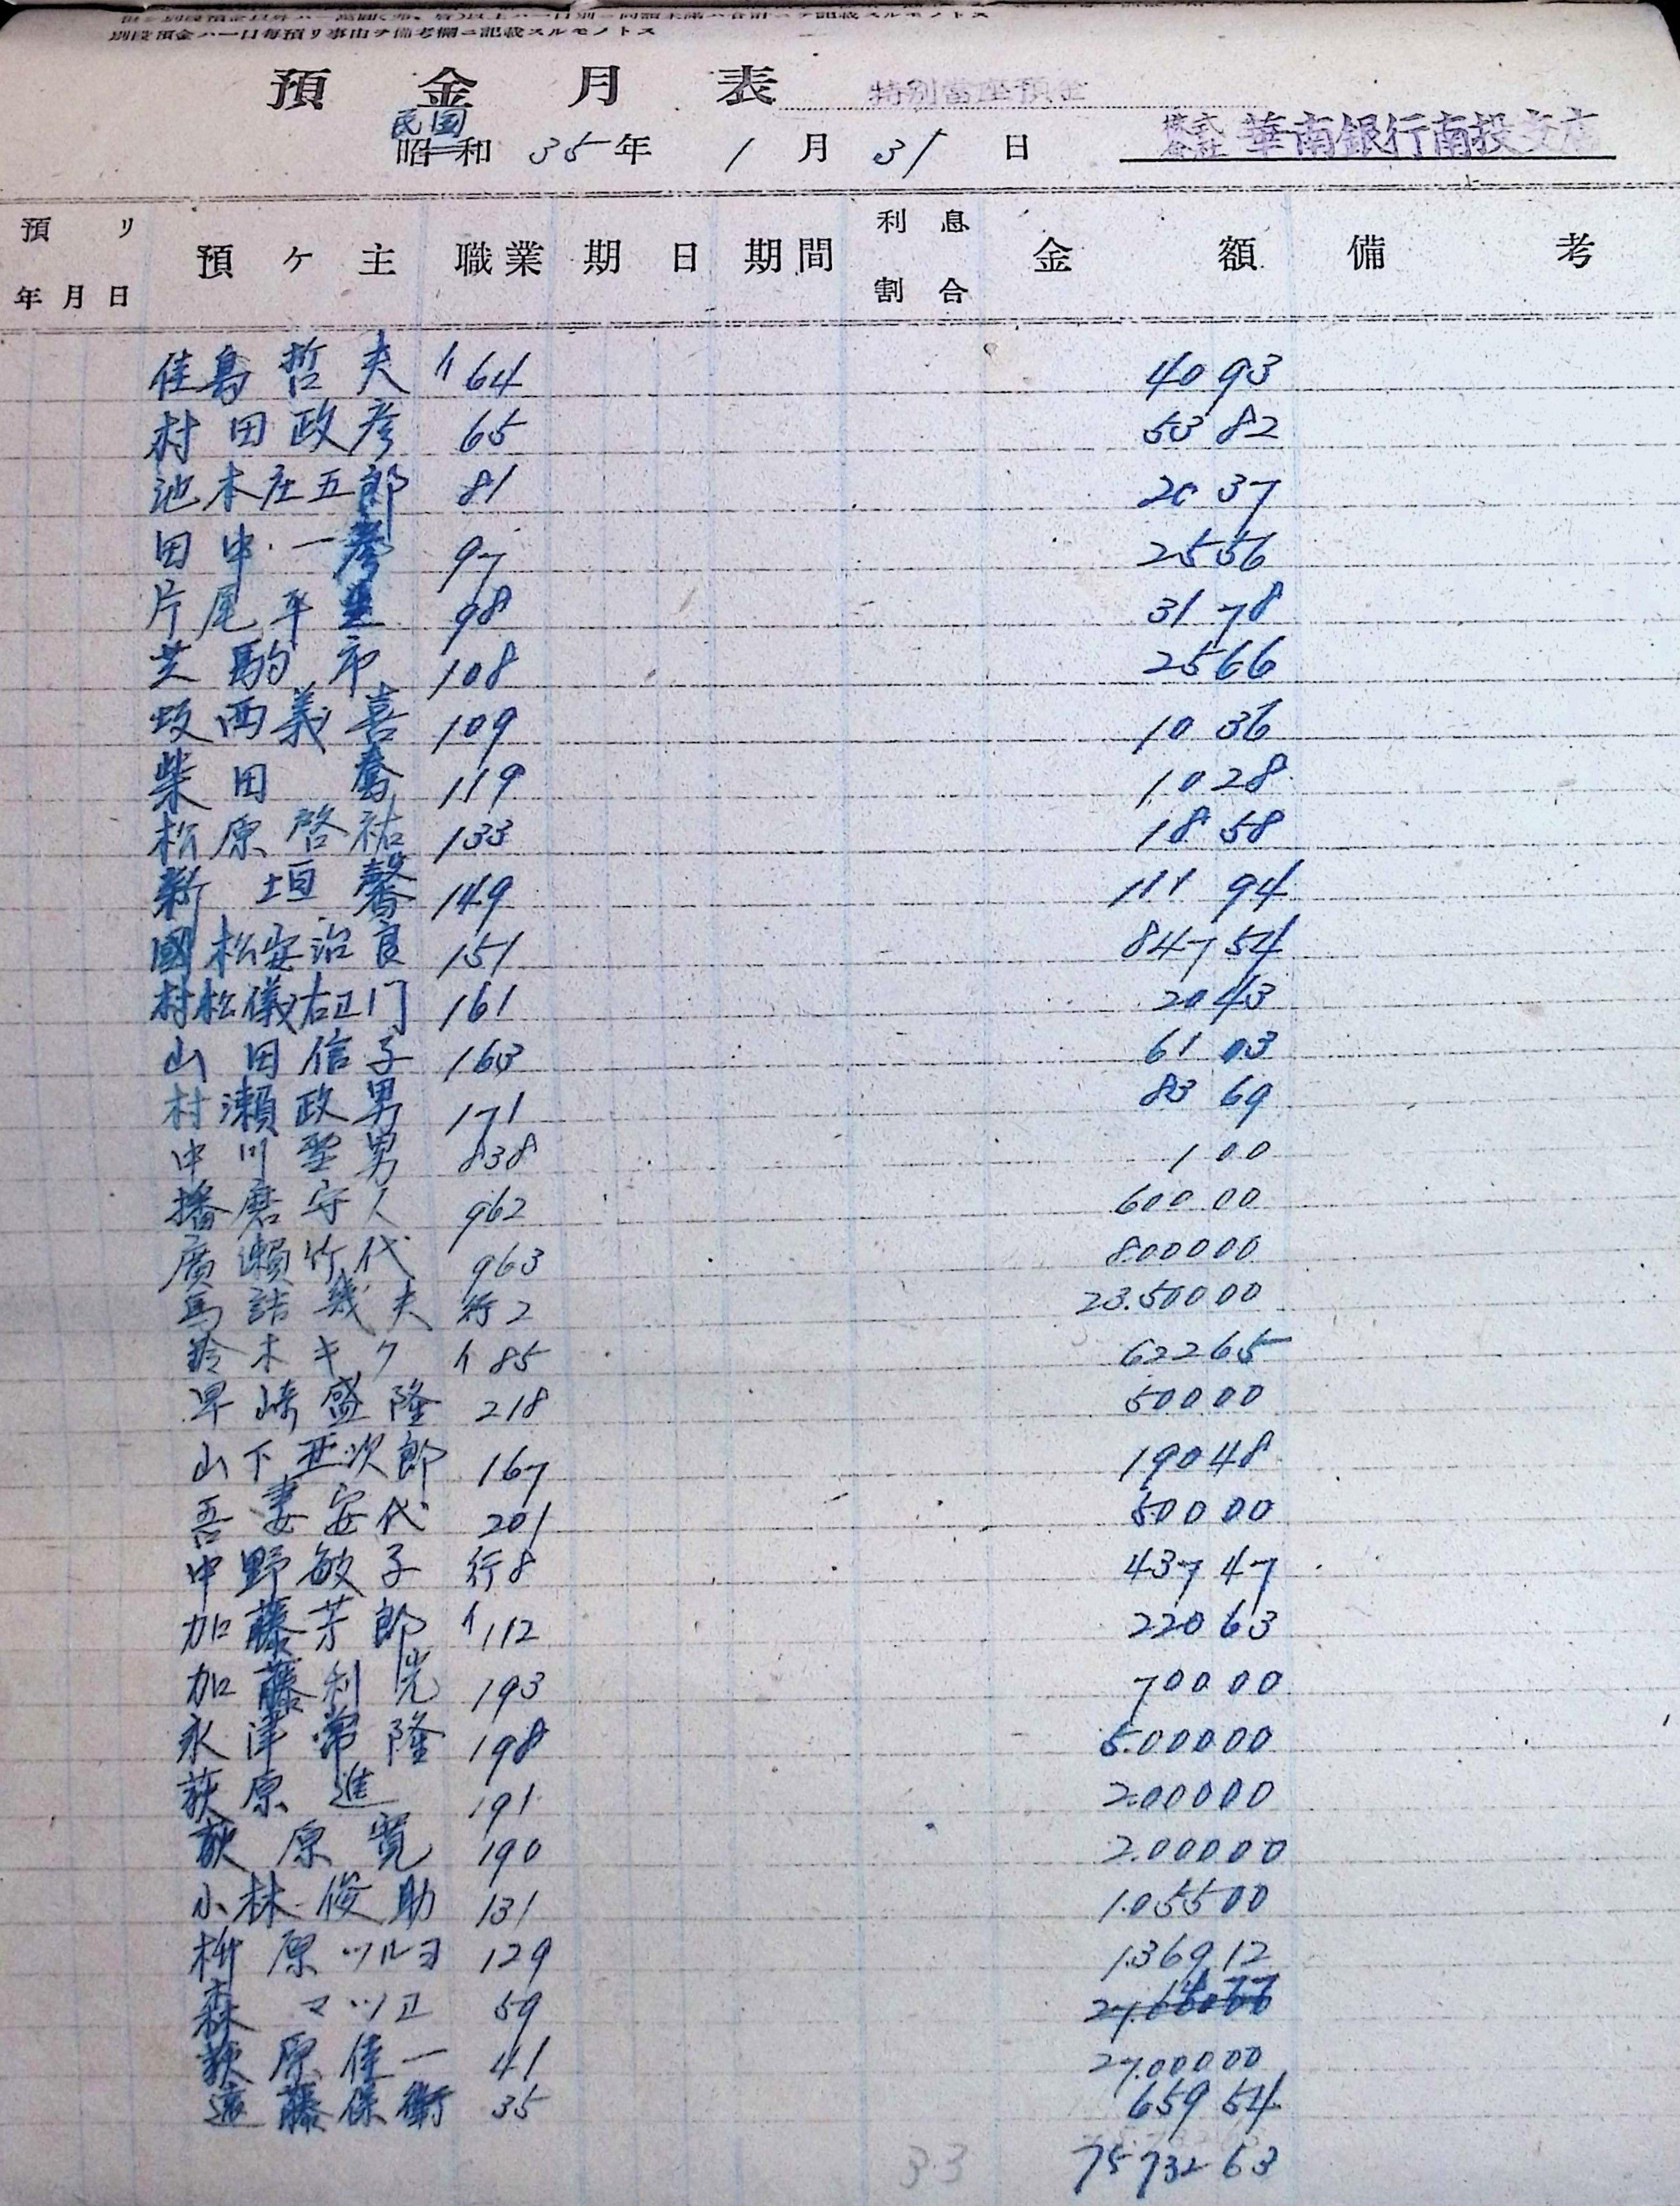 別段預金ハ一日每預リ事由ヲ備考欄ニ記載スルモノトス
預金月表 特別當座預金
民国
昭和 35年 1月 31日 株式会社 華南銀行南投支店
預リ年月日 預ケ主 職業 期日 期間 利息割合 金額 備考
佳島哲夫 イ64 40 93
村田政彦 65 53 82
池本庄五郎 81 20 37
田中一彦 97 25 56
片尾平 98 31 78
芝駒市 108 25 66
坂西義喜 109 10 36
柴田 119 10 28
松原啓祐 133 18 58
新垣馨 149 111 94
國松安治良 151 847 54
村松儀右ヱ门 161 20 43
山田信子 163 61 03
村瀨政男 171 83 69
中川聖男 838 1 00
播磨守人 962 600 00
廣瀨竹代 963 8.000 00
馬詰幾夫 行2 23.500 00
鈴木キク イ85 622 65
早崎盛隆 218 500 00
山下亚次郎 167 190 48
吾妻安代 201 500 00
中野敏子 行8 437 47
加藤芳郎 イ112 220 63
加藤利光 193 700 00
永津常隆 198 5.000 00
荻原進 191 2.000 00
荻原寛 190 2.000 00
小林俊助 131 1.055 00
桝原ツルヨ 129 1.369 12
森マツヱ 59
荻原佳一 41 27.000 00
遠藤保衛 35 659 54
33 75 732 63